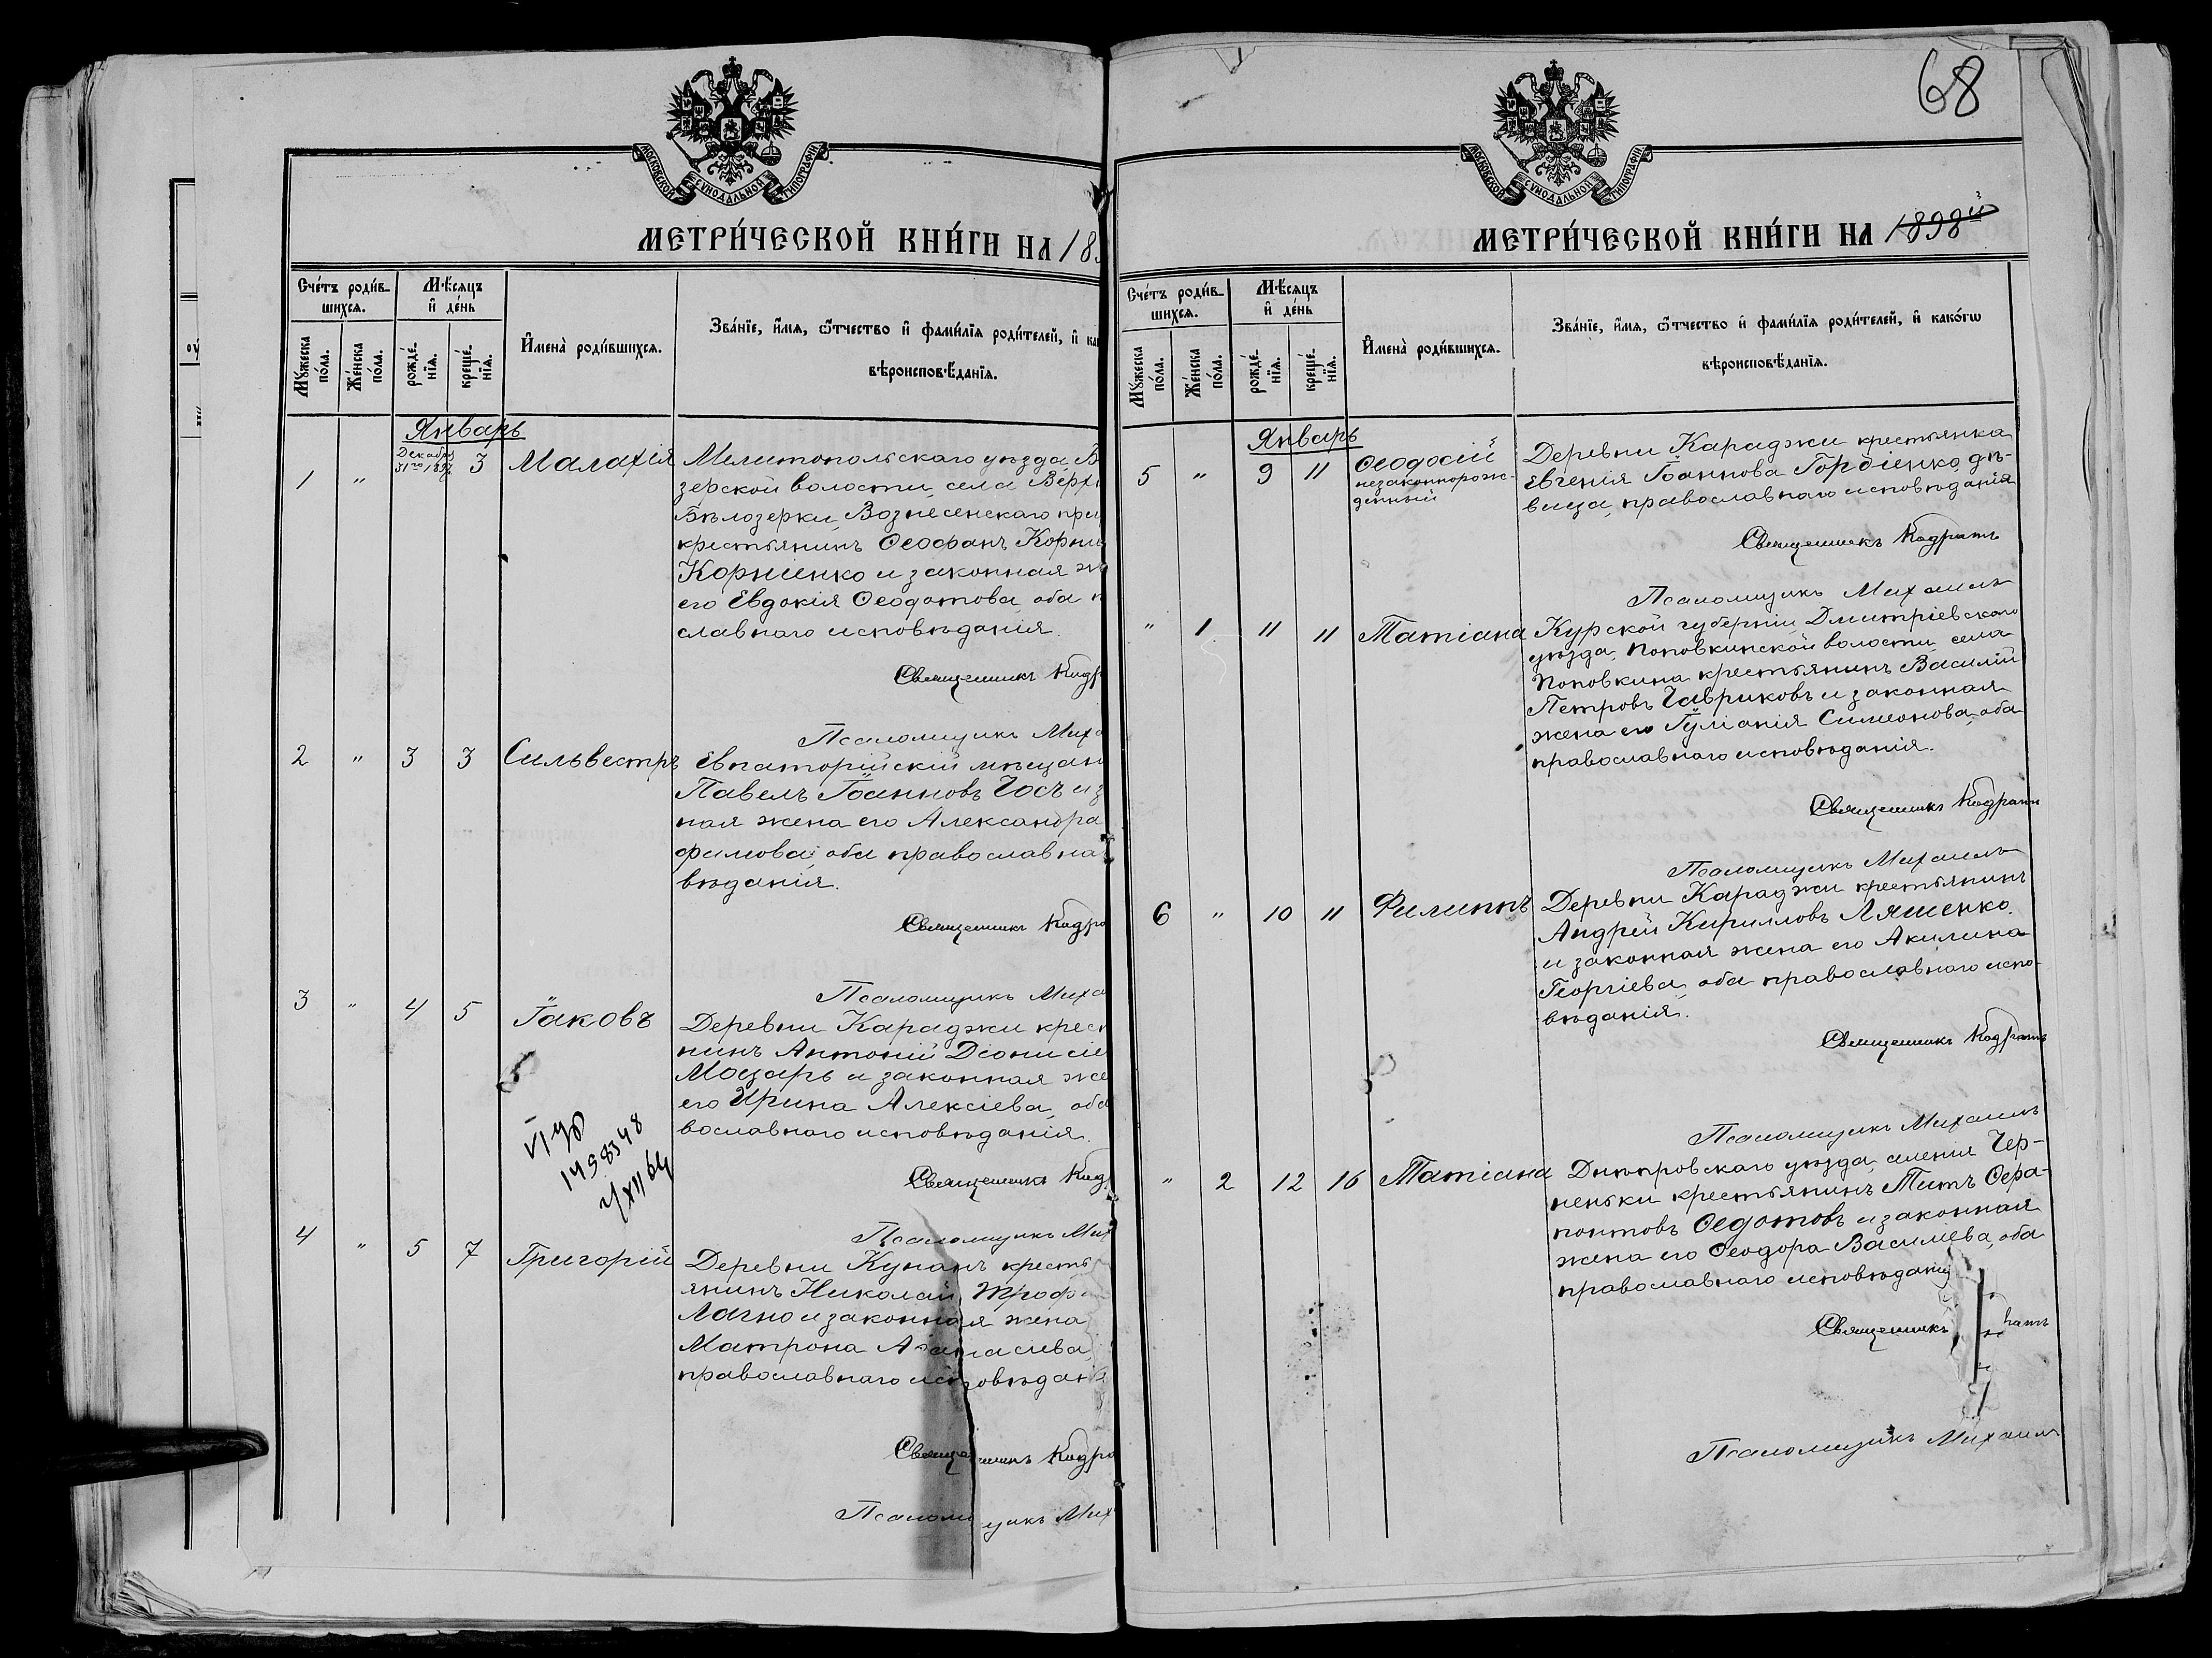 68
МОСКОВСКОЙ СѴНОДАЛЬНОЙ ТИПОГРАФІИ
МЕТРИ́ЧЕСКОЙ КНИ́ГИ НА 18
Сче́тъ роди́в-
шихся.
Мѣ́сяцъ
и҆ де́нь
Мꙋ́жеска
по́ла.
Же́нска
по́ла.
рожде́-
нїя.
креще́-
нїя.
И҆мена̀ роди́вшихся.
Зва́нїе, и҆́мя, ѻ҆́тчество и҆ фами́лїя роди́телей, и҆
вѣроисповѣ́данїя.
Январь
1 " Декабря 31го 1897 3 Малахія
Мелитопольскаго уѣзда, Б
зерской волости, села Верх
Бѣлозерки, Вознесенскаго при
крестьянинъ Ѳеофанъ Корни
Корниенко и законная ж
его Евдокія Ѳеодотова, оба п
славнаго исповѣданія.
Священникъ Кодр
Псаломщикъ Миха
2 " 3 3 Сильвестръ
Евпаторійскій мѣщан
Павелъ Іоанновъ Госъ и з
ная жена его Александра
фимова, оба православна
вѣданія.
Священникъ Кодра
Псаломщикъ Миха
3 " 4 5 Іаковъ
Деревни Караджи крест
нинъ Антоній Діонисіе
Моцарь и законная же
его Ирина Алексіева, оба
вославнаго исповѣданія.
Священникъ Код
1498348
Псаломщикъ Мих
4 " 5 7 Григорій
Деревни Кунанъ кресть
янинъ Николай Троф
Лагно и законная жена
Матрона Аѳанасиева,
православнаго исповѣдані
Священникъ Кодра
Псаломщикъ Мих
МОСКОВСКОЙ СѴНОДАЛЬНОЙ ТИПОГРАФІИ
МЕТРИ́ЧЕСКОЙ КНИ́ГИ НА 1898й
Сче́тъ роди́в-
шихся.
Мѣ́сяцъ
и҆ де́нь
Мꙋ́жеска
по́ла.
Же́нска
по́ла.
рожде́-
нїя.
креще́-
нїя.
И҆мена̀ роди́вшихся.
Зва́нїе, и҆́мя, ѻ҆́тчество и҆ фами́лїя роди́телей, и҆ како́гѡ
вѣроисповѣ́данїя.
Январь
5 " 9 11 Ѳеодосій
незаконнорож-
денный
Деревни Караджи крестьянка
Евгенія Іоаннова Гордіенко, дѣ-
вица, православнаго исповѣданія
Священникъ Кодратъ
Псаломщикъ Михаилъ
" 1 11 11 Татіана
Курской губерніи, Дмитріевскаго
уѣзда, Поповкинской волости, села
Поповкина крестьянинъ Василій
Петровъ Гавриковъ и законная
жена его Іуліанія Симеонова, оба
православнаго исповѣданія.
Священникъ Кодратъ
Псаломщикъ Михаилъ
6 " 10 11 Филиппъ
Деревни Караджи крестьянинъ
Андрей Кирилловъ Ляшенко
и законная жена его Акилина
Георгіева, оба православнаго испо-
вѣданія.
Священникъ Кодратъ
Псаломщикъ Михаилъ
" 2 12 16 Татіана
Днѣпровскаго уѣзда, селенія Чер-
неньки крестьянинъ Титъ Ѳера-
понтовъ Ѳедотовъ и законная
жена его Ѳеодора Василіева, оба
православнаго исповѣданія
Священникъ ратъ
Псаломщикъ Михаилъ